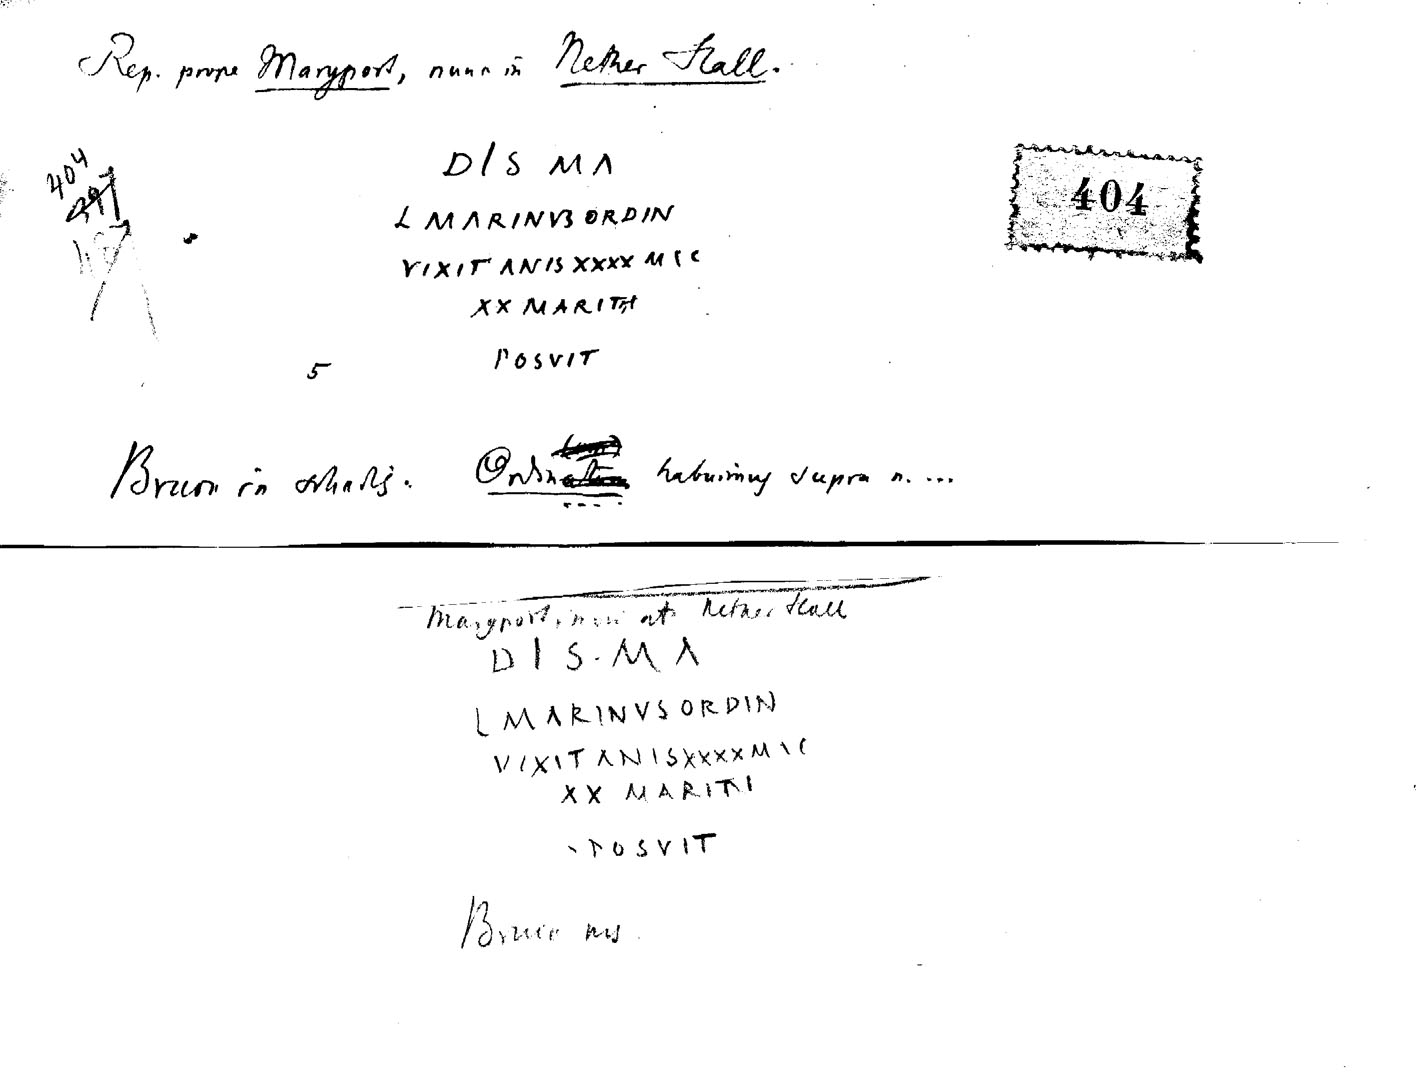 Rep. prope Maryport, nunc in Nether Hall.
404
397
404
DIS MA
L MARINVS ORDIN
VIXIT ANIS XXXX M I C
XX MARITI
5 POSVIT
Bruce in schedis. Ordin habuimus supra n. ...
Maryport, now at Nether Hall
DIS·MA
L MARINVS ORDIN
VIXIT ANIS XXXX M I C
XX MARITI
POSVIT
Bruce ms.